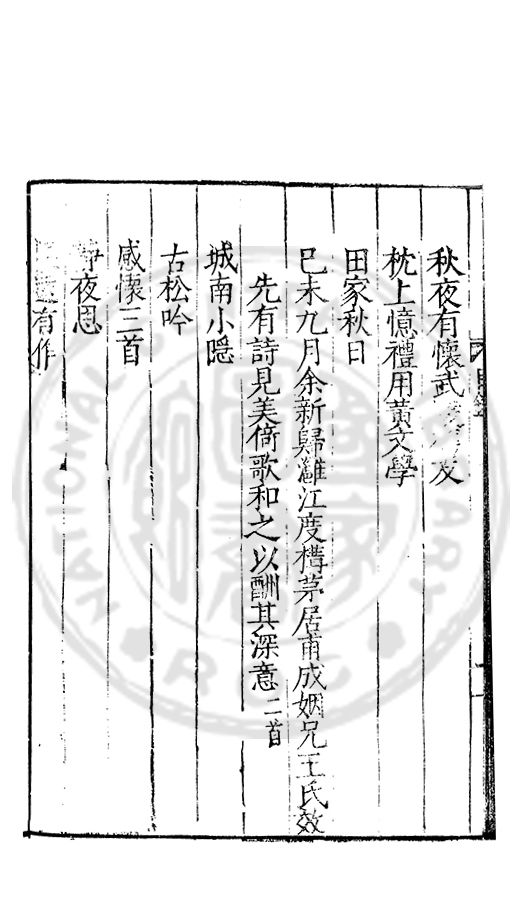 秋夜有懷武友
枕上憶禮用黃文學
田家秋日
己未九月余新歸灕江度構茅居甫成姻兄王氏效
先有詩見美倚歌和之以酬其深意二首
城南小隱
古松吟
感懷三首
靜夜思
有作
目錄
NATIONAL LIBRARY